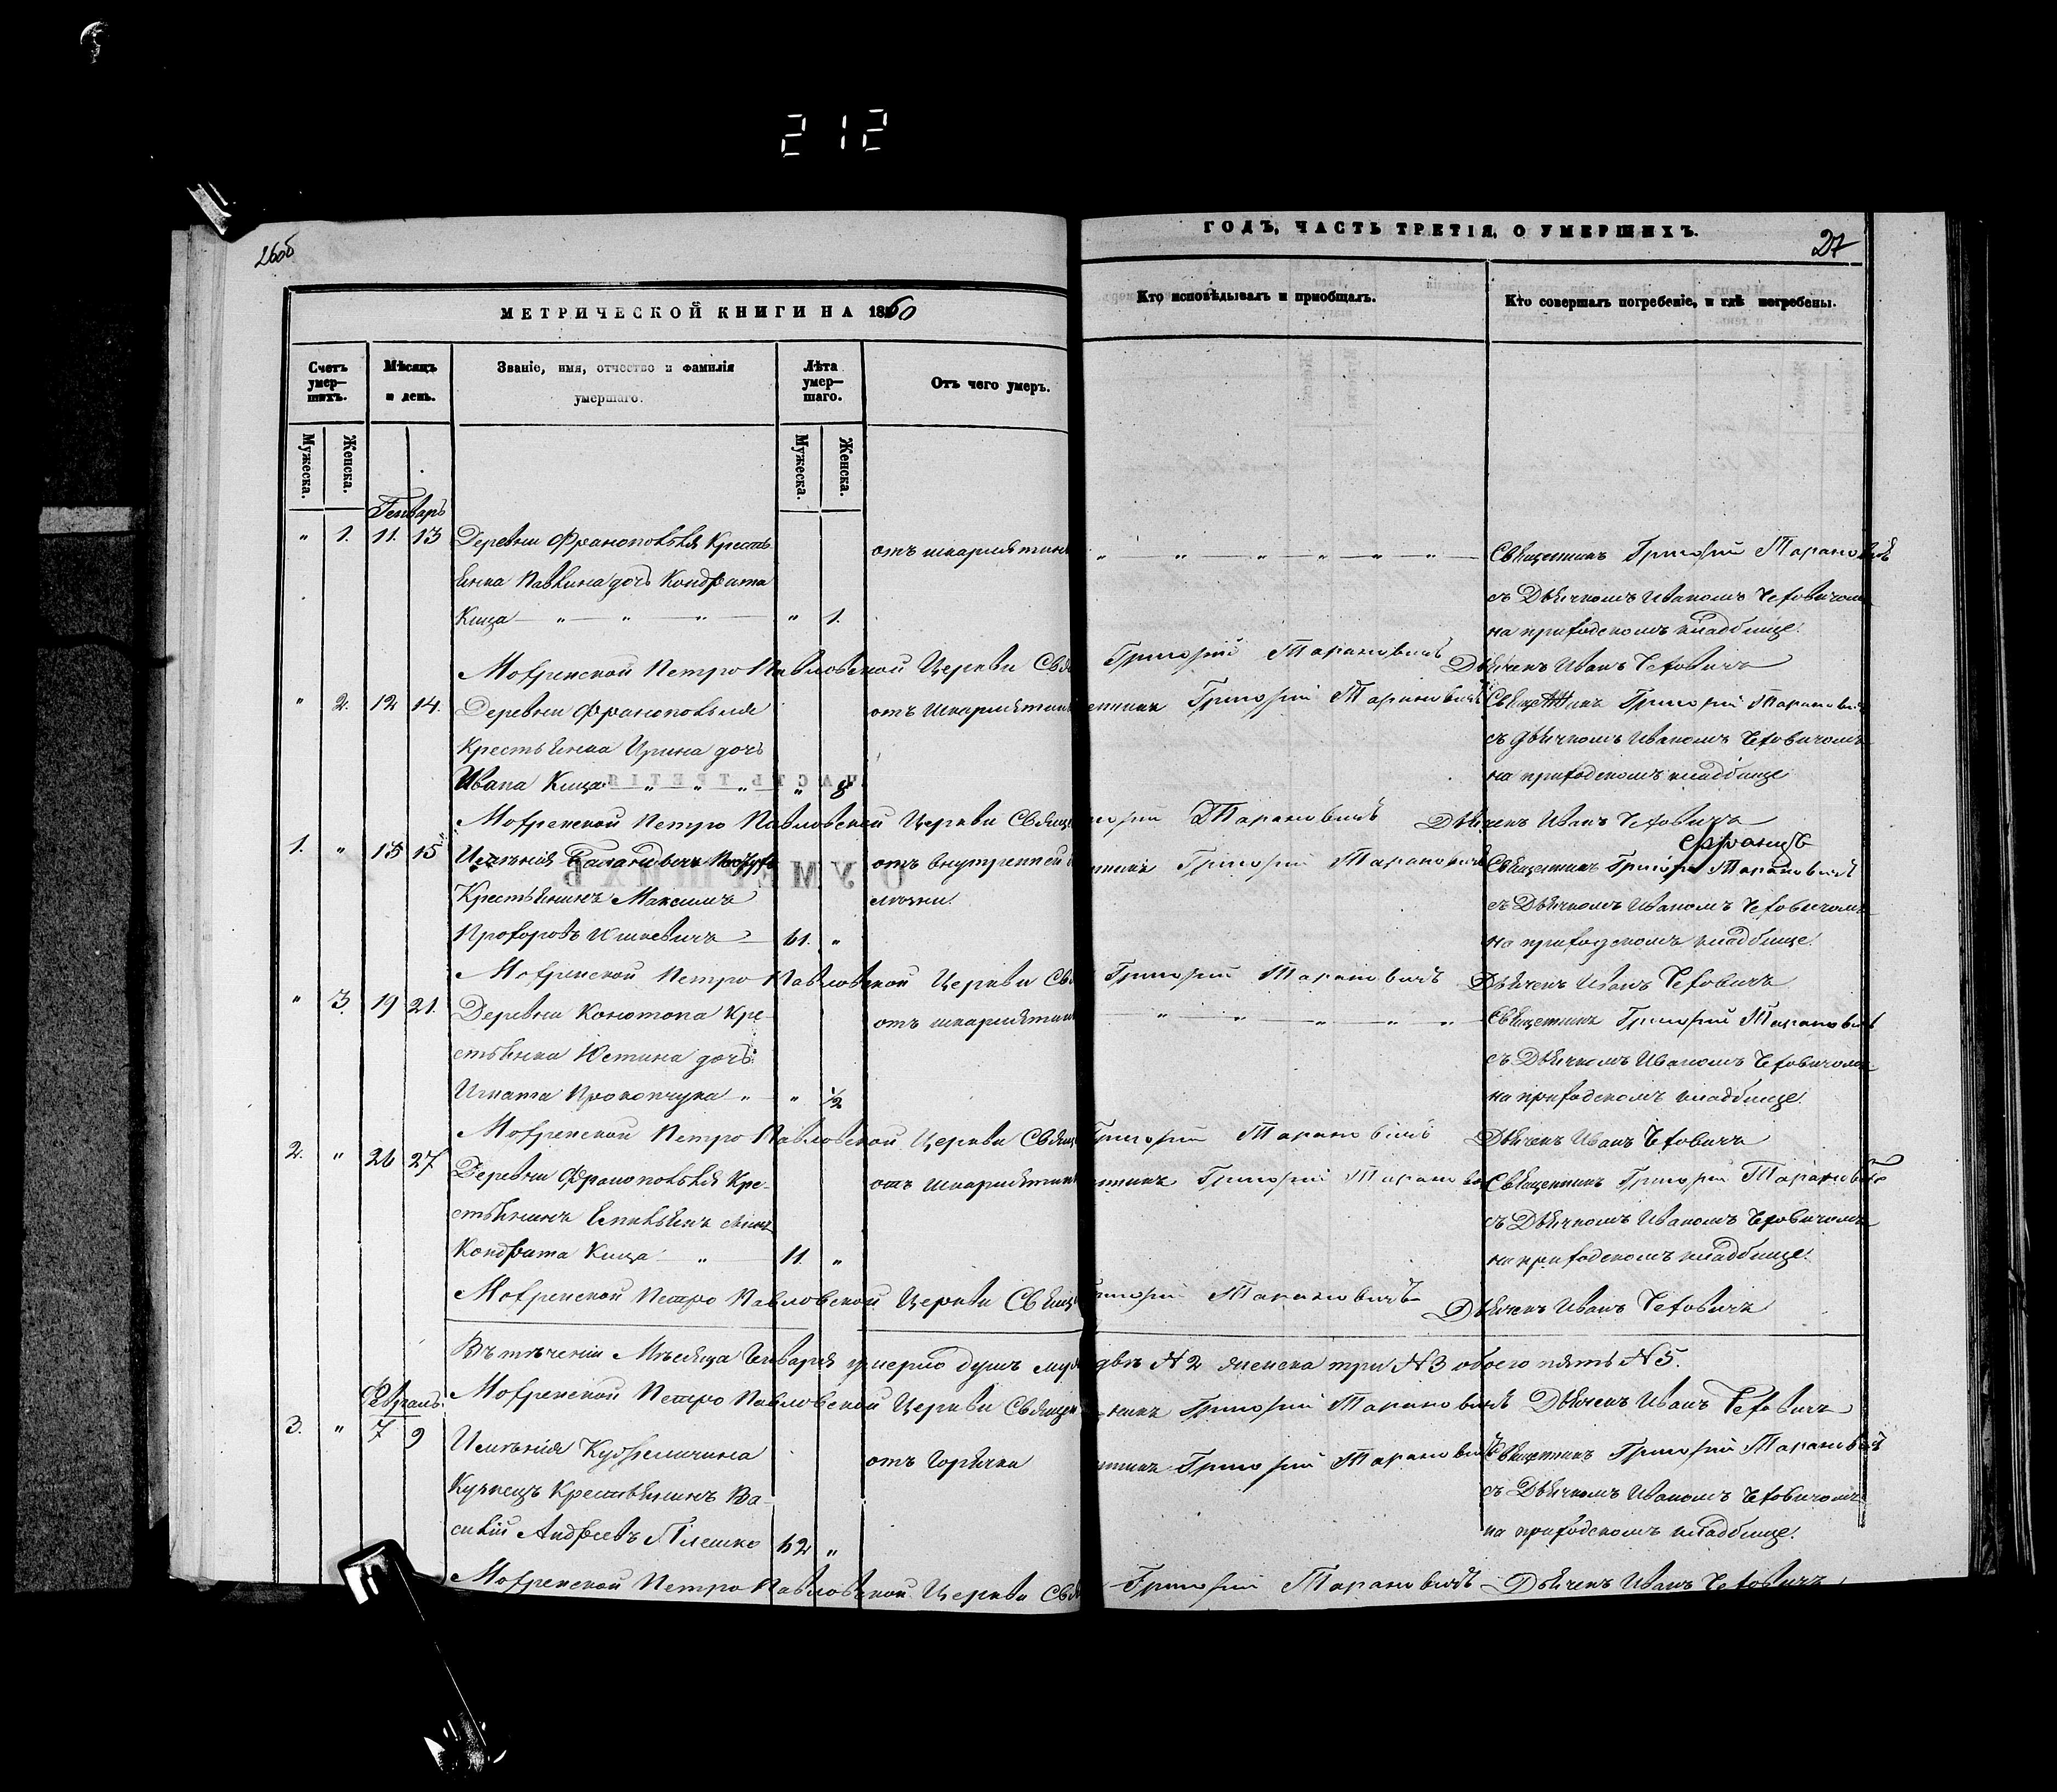 212
26об
МЕТРИЧЕСКОЙ КНИГИ НА 1860
ГОДЪ, ЧАСТЬ ТРЕТІЯ, О УМЕРШИХЪ.
27
Счетъ умер-шихъ.
Мѣсяцъ и день.
Званіе, имя, отчество и фамилія умершаго.
Лѣта умер-шаго.
Отъ чего умеръ.
Кто исповѣдывалъ и пріобщалъ.
Кто совершалъ погребеніе, и гдѣ погребены.
Мужеска. Женска.
Мужеска. Женска.
Генварь
" 1. 11. 13 Деревни Франополья Кресть-
янка Павлина дочь Кондрата
Кица " " " " 1.
отъ шкарлятины
" " " " " "
Священникъ Григорій Тарановичъ
съ Дьячкомъ Иваномъ Чеховичомъ
на приходскомъ кладбище.
Мохренской Петро Павловской Церкви Свя Григорій Тарановичъ Дьячекъ Иванъ Чеховичъ
" 2. 12 14. Деревни Франополья
Крестьянка Ирина дочь
Ивана Кица " " " " 8
отъ шкарлятины
енникъ Григорій Тарановичъ
Священникъ Григорій Тарановичъ
съ Дьячкомъ Иваномъ Чеховичомъ
на приходскомъ кладбище
Мохренской Петро Павловской Церкви Свящ горій Тарановичъ Дьячекъ Иванъ Чеховичъ
1. " 13 15 Имѣнія
Крестьянинъ Максимъ
Прохоровъ Ишкевичъ 61. "
отъ внутренней
нникъ Григорій Тарановичъ
Священникъ Григорій Тарановичъ
съ Дьячкомъ Иваномъ Чеховичомъ
на приходскомъ кладбище.
Мохренской Петро Павловской Церкви Свя Григорій Тарановичъ Дьячекъ Иванъ Чеховичъ
" 3. 19 21. Деревни Конотопа Кре-
стьянка Юстина дочь
Игната Прокопчука " " 1/2
отъ шкарлятины
" " " " "
Священникъ Григорій Тарановичъ
съ Дьячкомъ Иваномъ Чеховичомъ
на приходскомъ кладбище.
Мохренской Петро Павловской Церкви Свящ Григорій Тарановичъ Дьячекъ Иванъ Чеховичъ
2. " 26 27 Деревни Франополья Кре-
стьянинъ сынъ
Кондрата Кица " 11. "
отъ шкарлятины
нникъ Григорій Тарановичъ
Священникъ Григорій Тарановичъ
съ Дьячкомъ Иваномъ Чеховичомъ
на приходскомъ кладбище.
Мохренской Петро Павловской Церкви Свящ Григорій Тарановичъ Дьячекъ Иванъ Чеховичъ
Въ теченіи Мѣсяца Генваря умерло душъ муж двѣ N 2 женска три N 3 обоего пять N 5.
Мохренской Петро Павловской Церкви Священникъ Григорій Тарановичъ Дьячекъ Иванъ Чеховичъ
Февраль
3. " 7 9 Имѣнія
Кузнецъ Крестьянинъ Ва-
силій Андреевъ Плешко 62 "
отъ горячки
нникъ Григорій Тарановичъ
Священникъ Григорій Тарановичъ
съ Дьячкомъ Иваномъ Чеховичомъ
на приходскомъ кладбище.
Мохренской Петро Павловской Церкви Свя Григорій Тарановичъ Дьячекъ Иванъ Чеховичъ